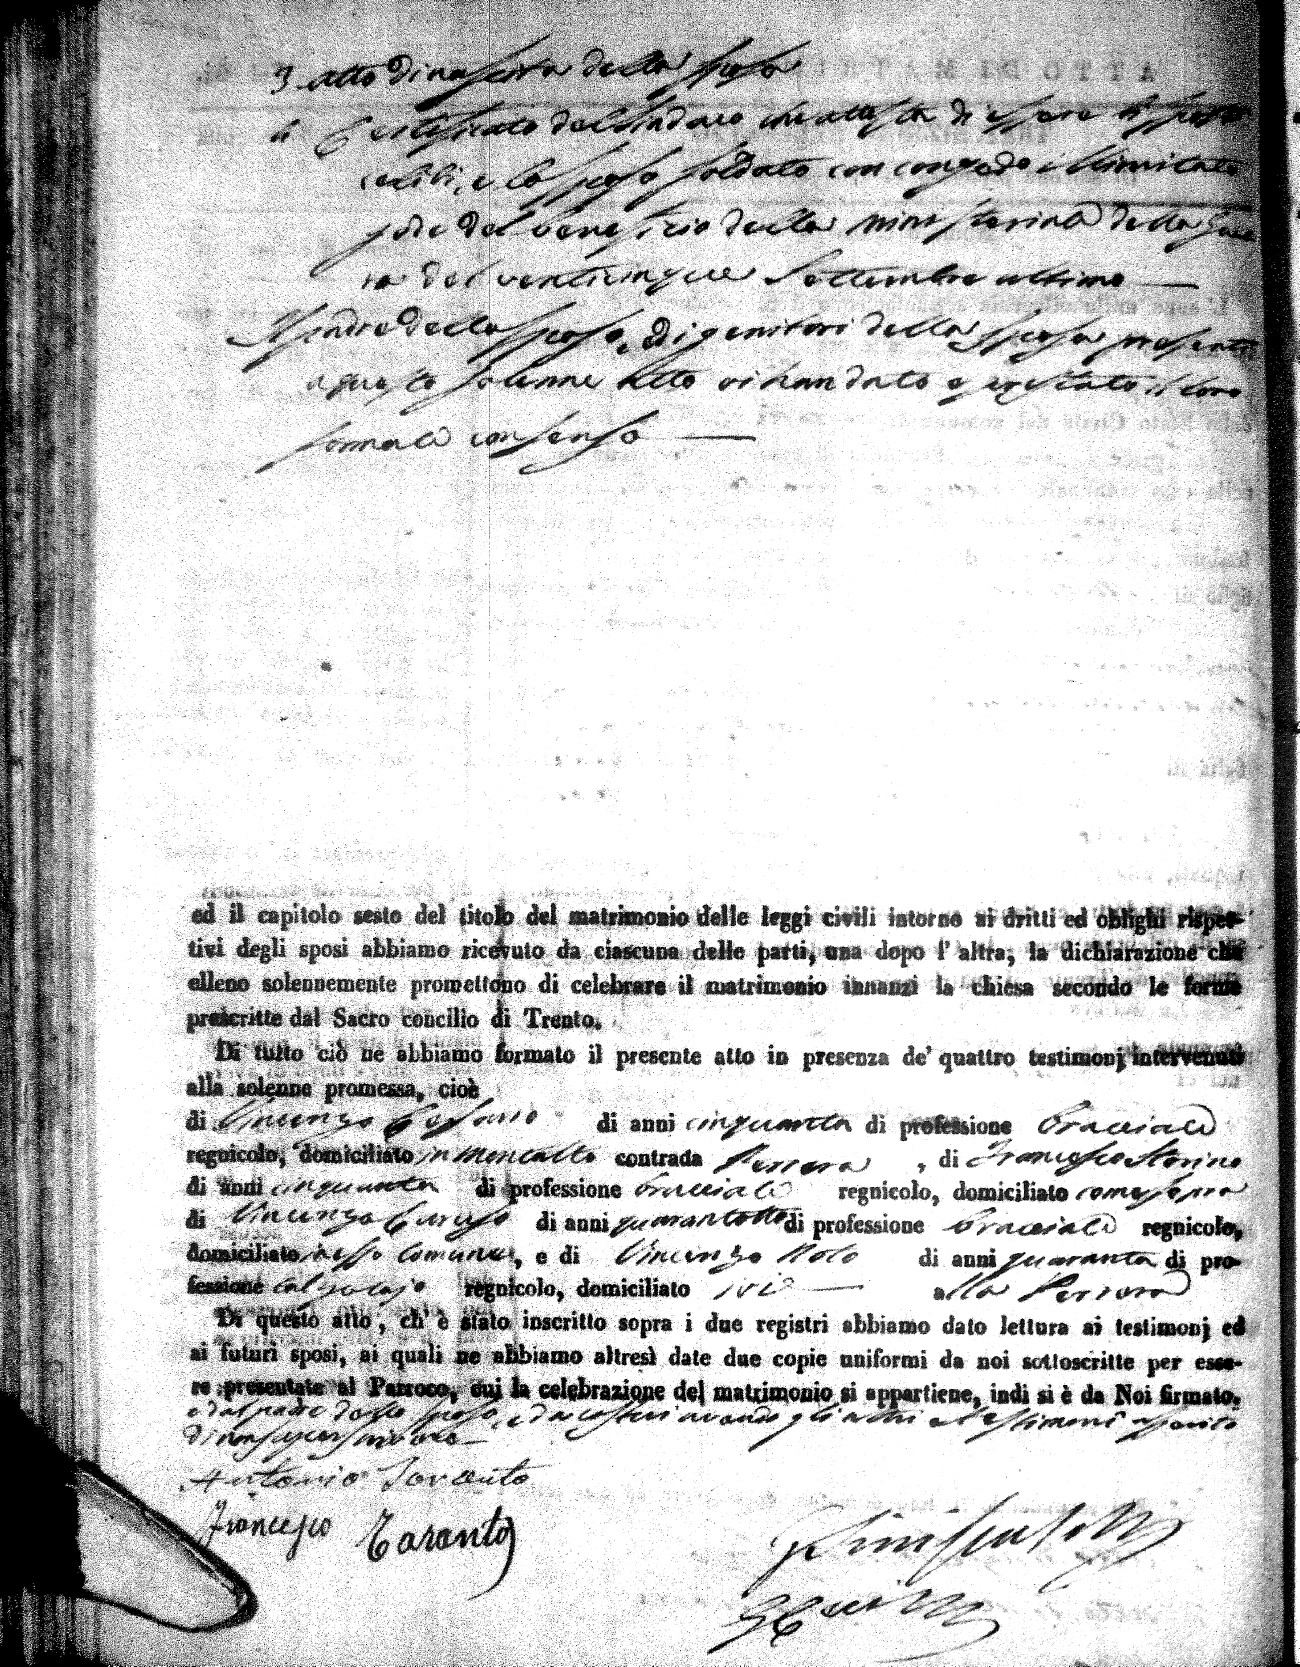 3. Atto di nascita della sposa
4. Certificato del Sindaco che attesta di essere gli sposi
celibi, e lo sposo soldato con congedo illimitato
gode del beneficio della ministeriale della Guer
ra del venticinque Settembre ultimo —
Il padre dello sposo, e di genitori della sposa presenti
a questo solenne Atto ci han dato e prestato il loro
formale consenso —
ed il capitolo sesto del titolo del matrimonio delle leggi civili intorno ai dritti ed oblighi rispet-
tivi degli sposi abbiamo ricevuto da ciascuna delle parti, una dopo l' altra, la dichiarazione che
elleno solennemente promettono di celebrare il matrimonio innanzi la chiesa secondo le forme
prescritte dal Sacro concilio di Trento.
Di tutto ciò ne abbiamo formato il presente atto in presenza de' quattro testimonj intervenuti
alla solenne promessa, cioè
di Vincenzo Cesario di anni cinquanta di professione bracciale
regnicolo, domiciliato in Montalto contrada Perrera , di Francesco Storino
di anni cinquanta di professione bracciale regnicolo, domiciliato come sopra
di Vincenzo Caruso di anni quarantotto di professione bracciale regnicolo,
domiciliato in esso Comune, e di Vincenzo di anni quaranta di pro-
fessione calzolajo regnicolo, domiciliato ivi — alla Perrera
Di questo atto, ch' è stato inscritto sopra i due registri abbiamo dato lettura ai testimonj ed
ai futuri sposi, ai quali ne abbiamo altresì date due copie uniformi da noi sottoscritte per esse-
re presentate al Parroco, cui la celebrazione del matrimonio si appartiene, indi si è da Noi firmato,
e dal padre dello sposo, e da costui avendo gli altri e testimoni asserito
di non saper scrivere —
Antonio Taranto
Francesco Taranto